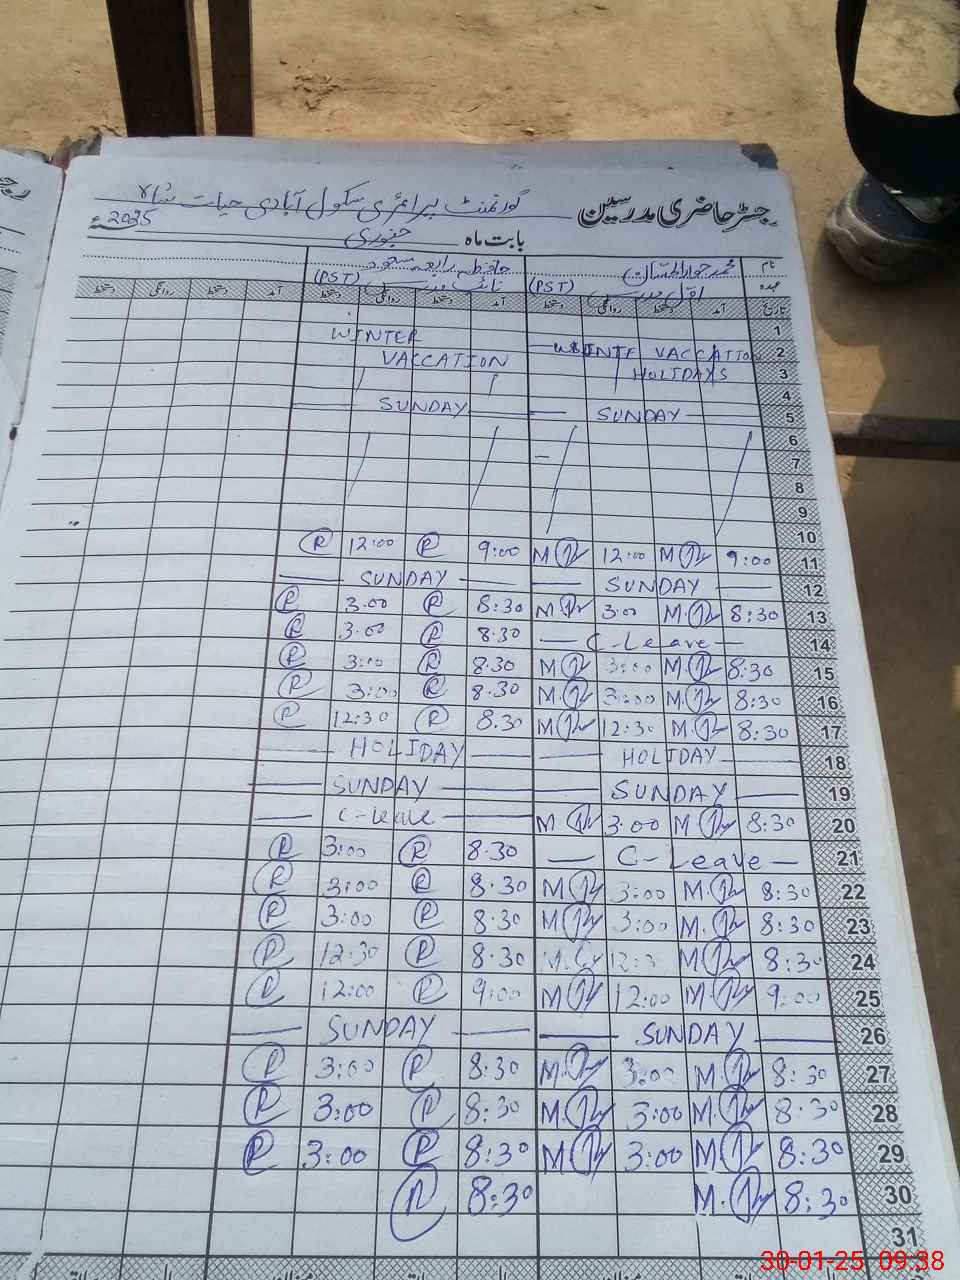 رجسٹر حاضری مدرسین گورنمنٹ پرائمری سکول آبادی حیات
بابت ماہ جنوری 2025ء
نام محمد حافظہ رابعہ مسعود
عہدہ (PST) (PST)
تاریخ آمد دستخط روانگی دستخط آمد دستخط روانگی دستخط آمد دستخط روانگی دستخط
1 WINTER
2 WINTE VACCATION VACCATION
3 HOLIDAYS
4
5 SUNDAY SUNDAY
6
7
8
9
10
11 9:00 M 12:00 M 9:00 R 12:00 R
12 SUNDAY SUNDAY
13 8:30 M. 3:00 M 8:30 R 3.00 R
14 C-Leave 8.30 R 3.00 R
15 8:30 M. 3:00 M 8.30 R 3:00 R
16 8:30 M. 3:00 M 8.30 R 3:00 R
17 8:30 M. 12:30 M 8.30 R 12:30 R
18 HOLIDAY HOLIDAY
19 SUNDAY SUNDAY
20 8:30 M. 3:00 M C-leave
21 C-Leave 8.30 R 3:00 R
22 8:30 M. 3:00 M 8.30 R 3:00 R
23 8:30 M. 3:00 M 8.30 R 3:00 R
24 8:30 M 12:3 M. 8.30 R 12:30 R
25 9:00 M. 12:00 M 9:00 R 12:00 R
26 SUNDAY SUNDAY
27 8:30 M. 3:00 M. 8:30 R 3:00 R
28 8:30 M. 3:00 M. 8:30 R 3:00 R
29 8:30 M 3:00 M 8:30 R 3:00 R
30 8:30 M. 8:30 R
31
30-01-25 09:38